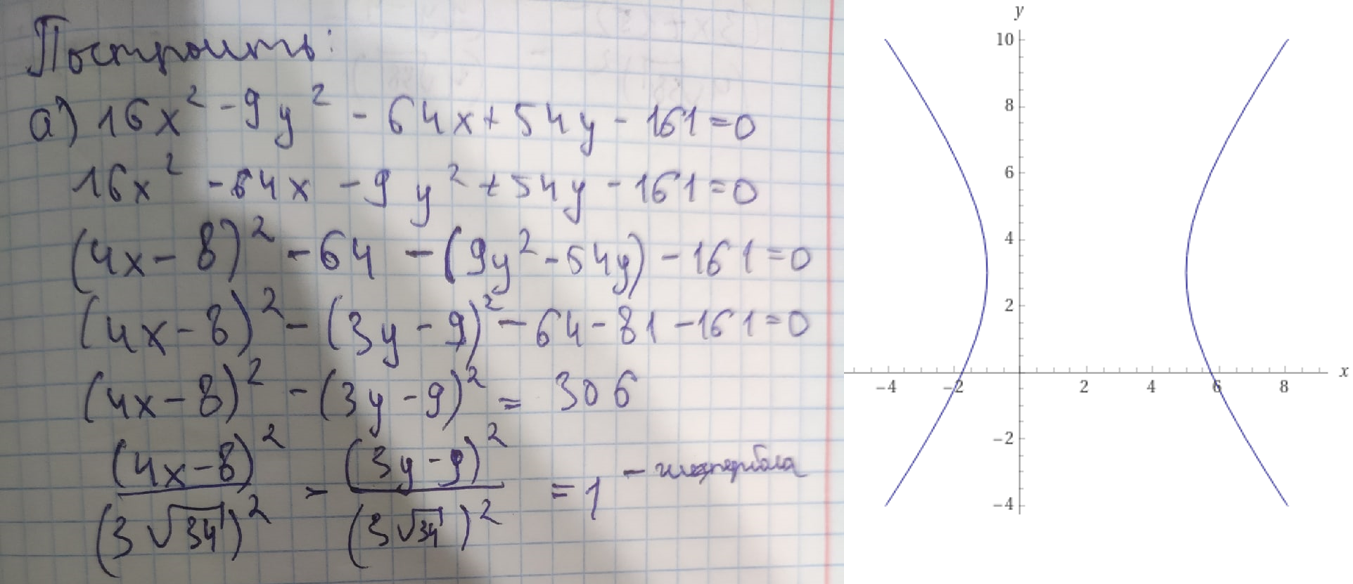 Построить:
а) 16x² - 9y² - 64x + 54y - 161 = 0
16x² - 64x - 9y² + 54y - 161 = 0
(4x - 8)² - 64 - (9y² - 54y) - 161 = 0
(4x - 8)² - (3y - 9)² - 64 - 81 - 161 = 0
(4x - 8)² - (3y - 9)² = 306
(4x - 8)² / (3√34)² - (3y - 9)² / (3√34)² = 1 - гипербола
y
10
8
6
4
2
-4 -2 2 4 6 8 x
-2
-4